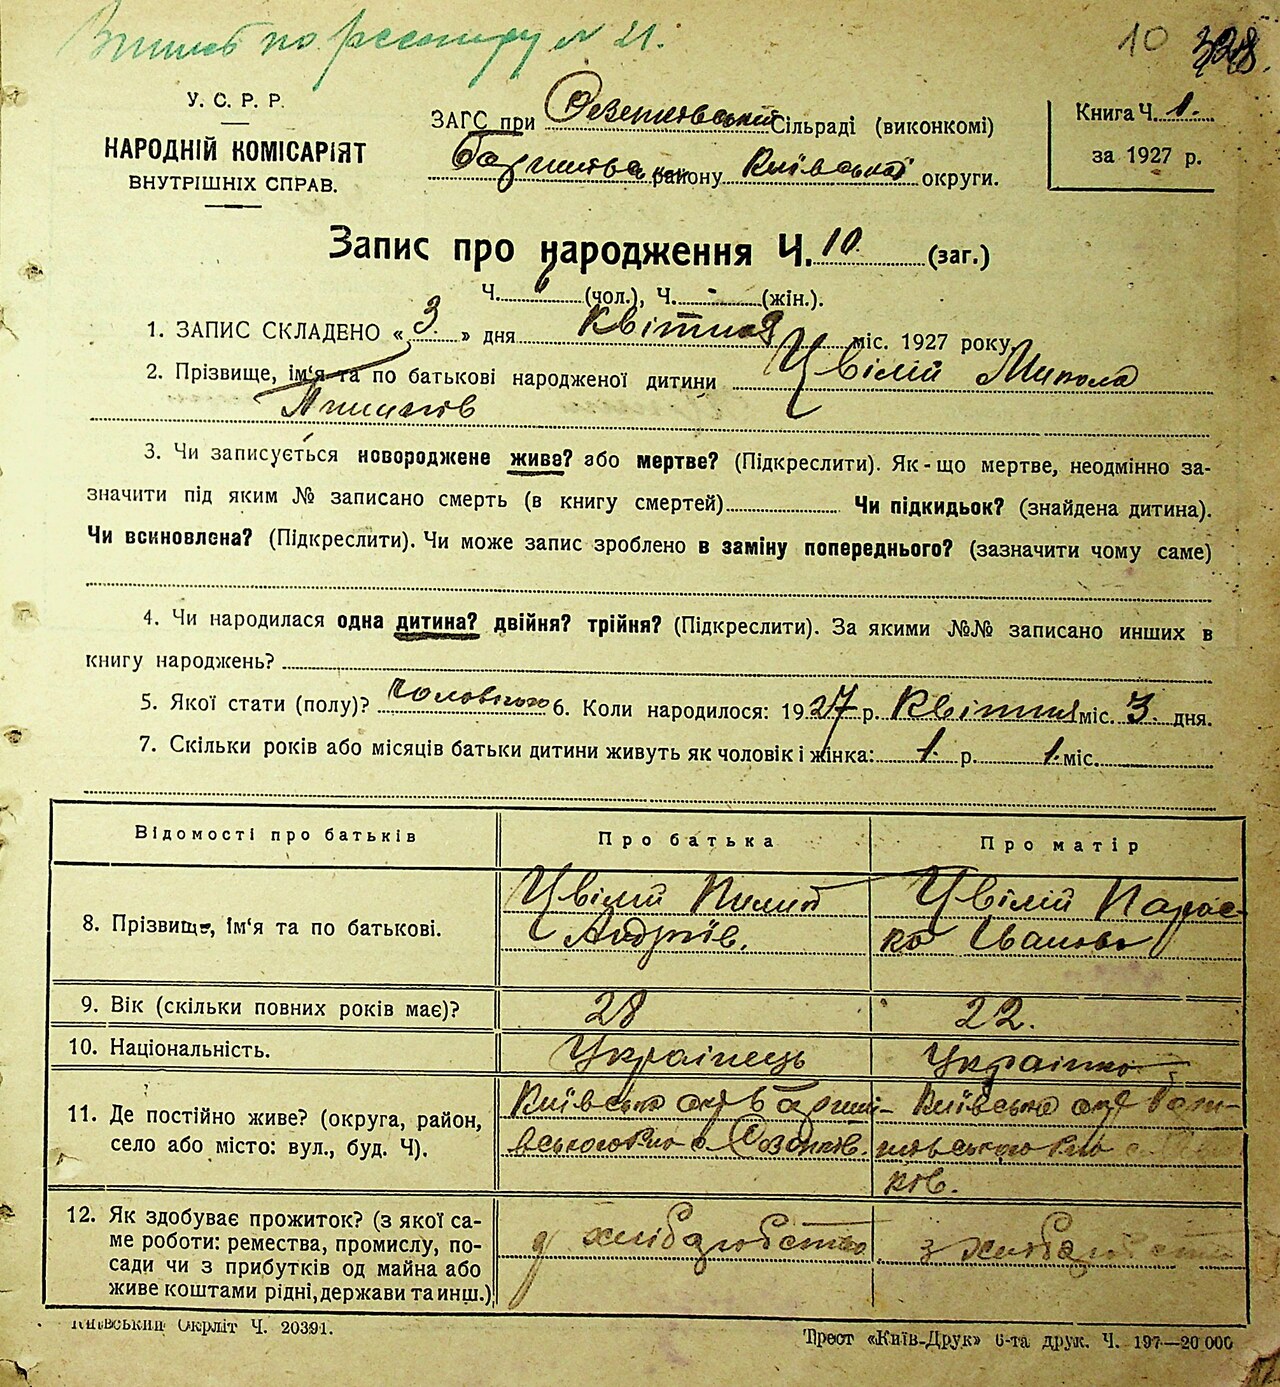 по реєстру № 21.
10
328.
У. С. Р. Р.
НАРОДНІЙ КОМІСАРІЯТ
ВНУТРІШНІХ СПРАВ.
ЗАГС при Сільраді (виконкомі)
району Київської округи.
Книга Ч. 1.
за 1927 р.
Запис про народження Ч. 10 (заг.)
Ч. 6 (чол.), Ч. - (жін.).
1. ЗАПИС СКЛАДЕНО « 3. » дня Квітня міс. 1927 року
2. Прізвище, ім'я та по батькові народженої дитини Цвілій Микола
Пилипів
3. Чи записується новороджене живе? або мертве? (Підкреслити). Як-що мертве, неодмінно за-
значити під яким № записано смерть (в книгу смертей) Чи підкидьок? (знайдена дитина).
Чи всиновлена? (Підкреслити). Чи може запис зроблено в заміну попереднього? (зазначити чому саме)
4. Чи народилася одна дитина? двійня? трійня? (Підкреслити). За якими №№ записано инших в
книгу народжень?
5. Якої стати (полу)? чоловічого 6. Коли народилося: 1927 р. Квітня міс. 3. дня.
7. Скільки років або місяців батьки дитини живуть як чоловік і жінка: 1 р. 1 міс.
Відомості про батьків Про батька Про матір
8. Прізвище, ім'я та по батькові. Цвілій Пилип Цвілій Парас-
Андріїв. ка Іванова
9. Вік (скільки повних років має)? 28 22.
10. Національність. Українець Українка
11. Де постійно живе? (округа, район, Київська окр Київська окр
село або місто: вул., буд. Ч).
ків.
12. Як здобуває прожиток? (з якої са-
ме роботи: ремества, промислу, по- з хліборобства з хліборобства
сади чи з прибутків од майна або
живе коштами рідні, держави та инш.)
Київський Окрліт Ч. 20391.
Трест «Київ-Друк» 6-та друк. Ч. 197—20 000